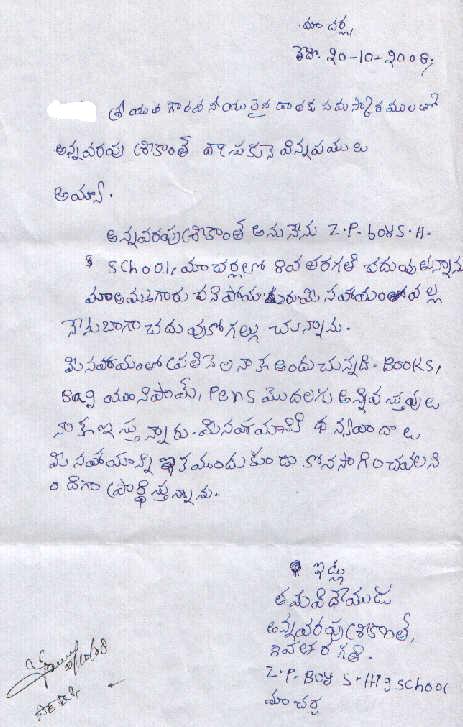 మాచర్ల,
తేది. 20-10-2008,
శ్రీయుత గౌరవనీయులైన దాతకు నమస్కారములతో
అన్నవరపు శ్రీకాంత్ వ్రాసుకునే విన్నపములు
అయ్యా.
అన్నవరపు శ్రీకాంత్ అను నేను Z.P-boys-H.
School, మాచర్లలో 8వ తరగతి చదువుతున్నాను
మా అమ్మగారు చనిపోయారు మీ సహాయం వల్ల
నేను బాగా చదువుకోగల్గుచున్నాను.
మీ సహాయం ప్రతి నెల నాకు అందుచున్నది. Books,
యూనిఫామ్, Pens మొదలగు అన్ని వస్తువులు
నాకు ఇస్తున్నారు. మీ సహాయానికి ధన్యవాదాలు
మీ సహాయాన్ని ఇక ముందు కుడా కొనసాగించవలసి
ందిగా ప్రార్థిస్తున్నాను.
ఇట్లు
తమ విధేయుడు
అన్నవరపు శ్రీకాంత్,
8వ తరగతి.
Z.P-Boys-High School
మాచర్ల